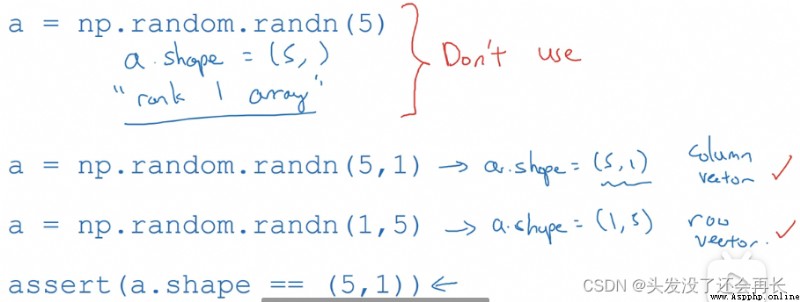 a = np.random.randn(5)
a.shape = (5,)
"rank 1 array"
Don't use
a = np.random.randn(5,1) → a.shape = (5,1) column vector ✓
a = np.random.randn(1,5) → a.shape = (1,5) row vector. ✓
assert(a.shape == (5,1)) ←
CSDN @头发没了还会再长
www.Aspphp.online